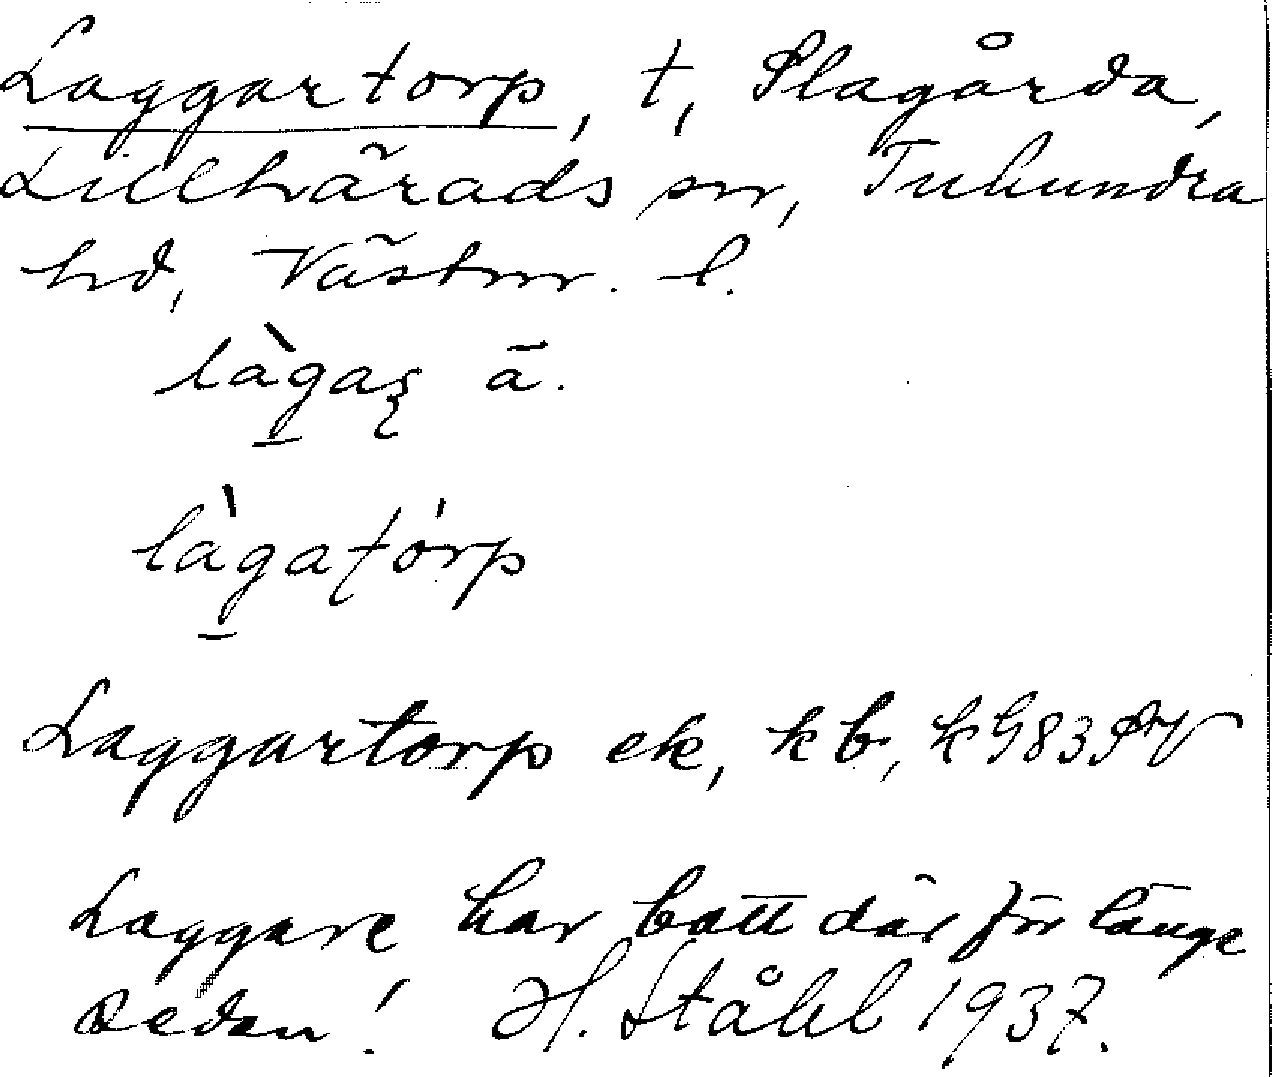 Laggartorp, t, Slagårda,
Lillhärads sn, Tuhundra
hd, Västm. l.
làgaʂ ä.
làgatórp
Laggartorp ek, kb, k G83SV
Laggare har bott där för länge
sedan! H. Ståhl 1937.